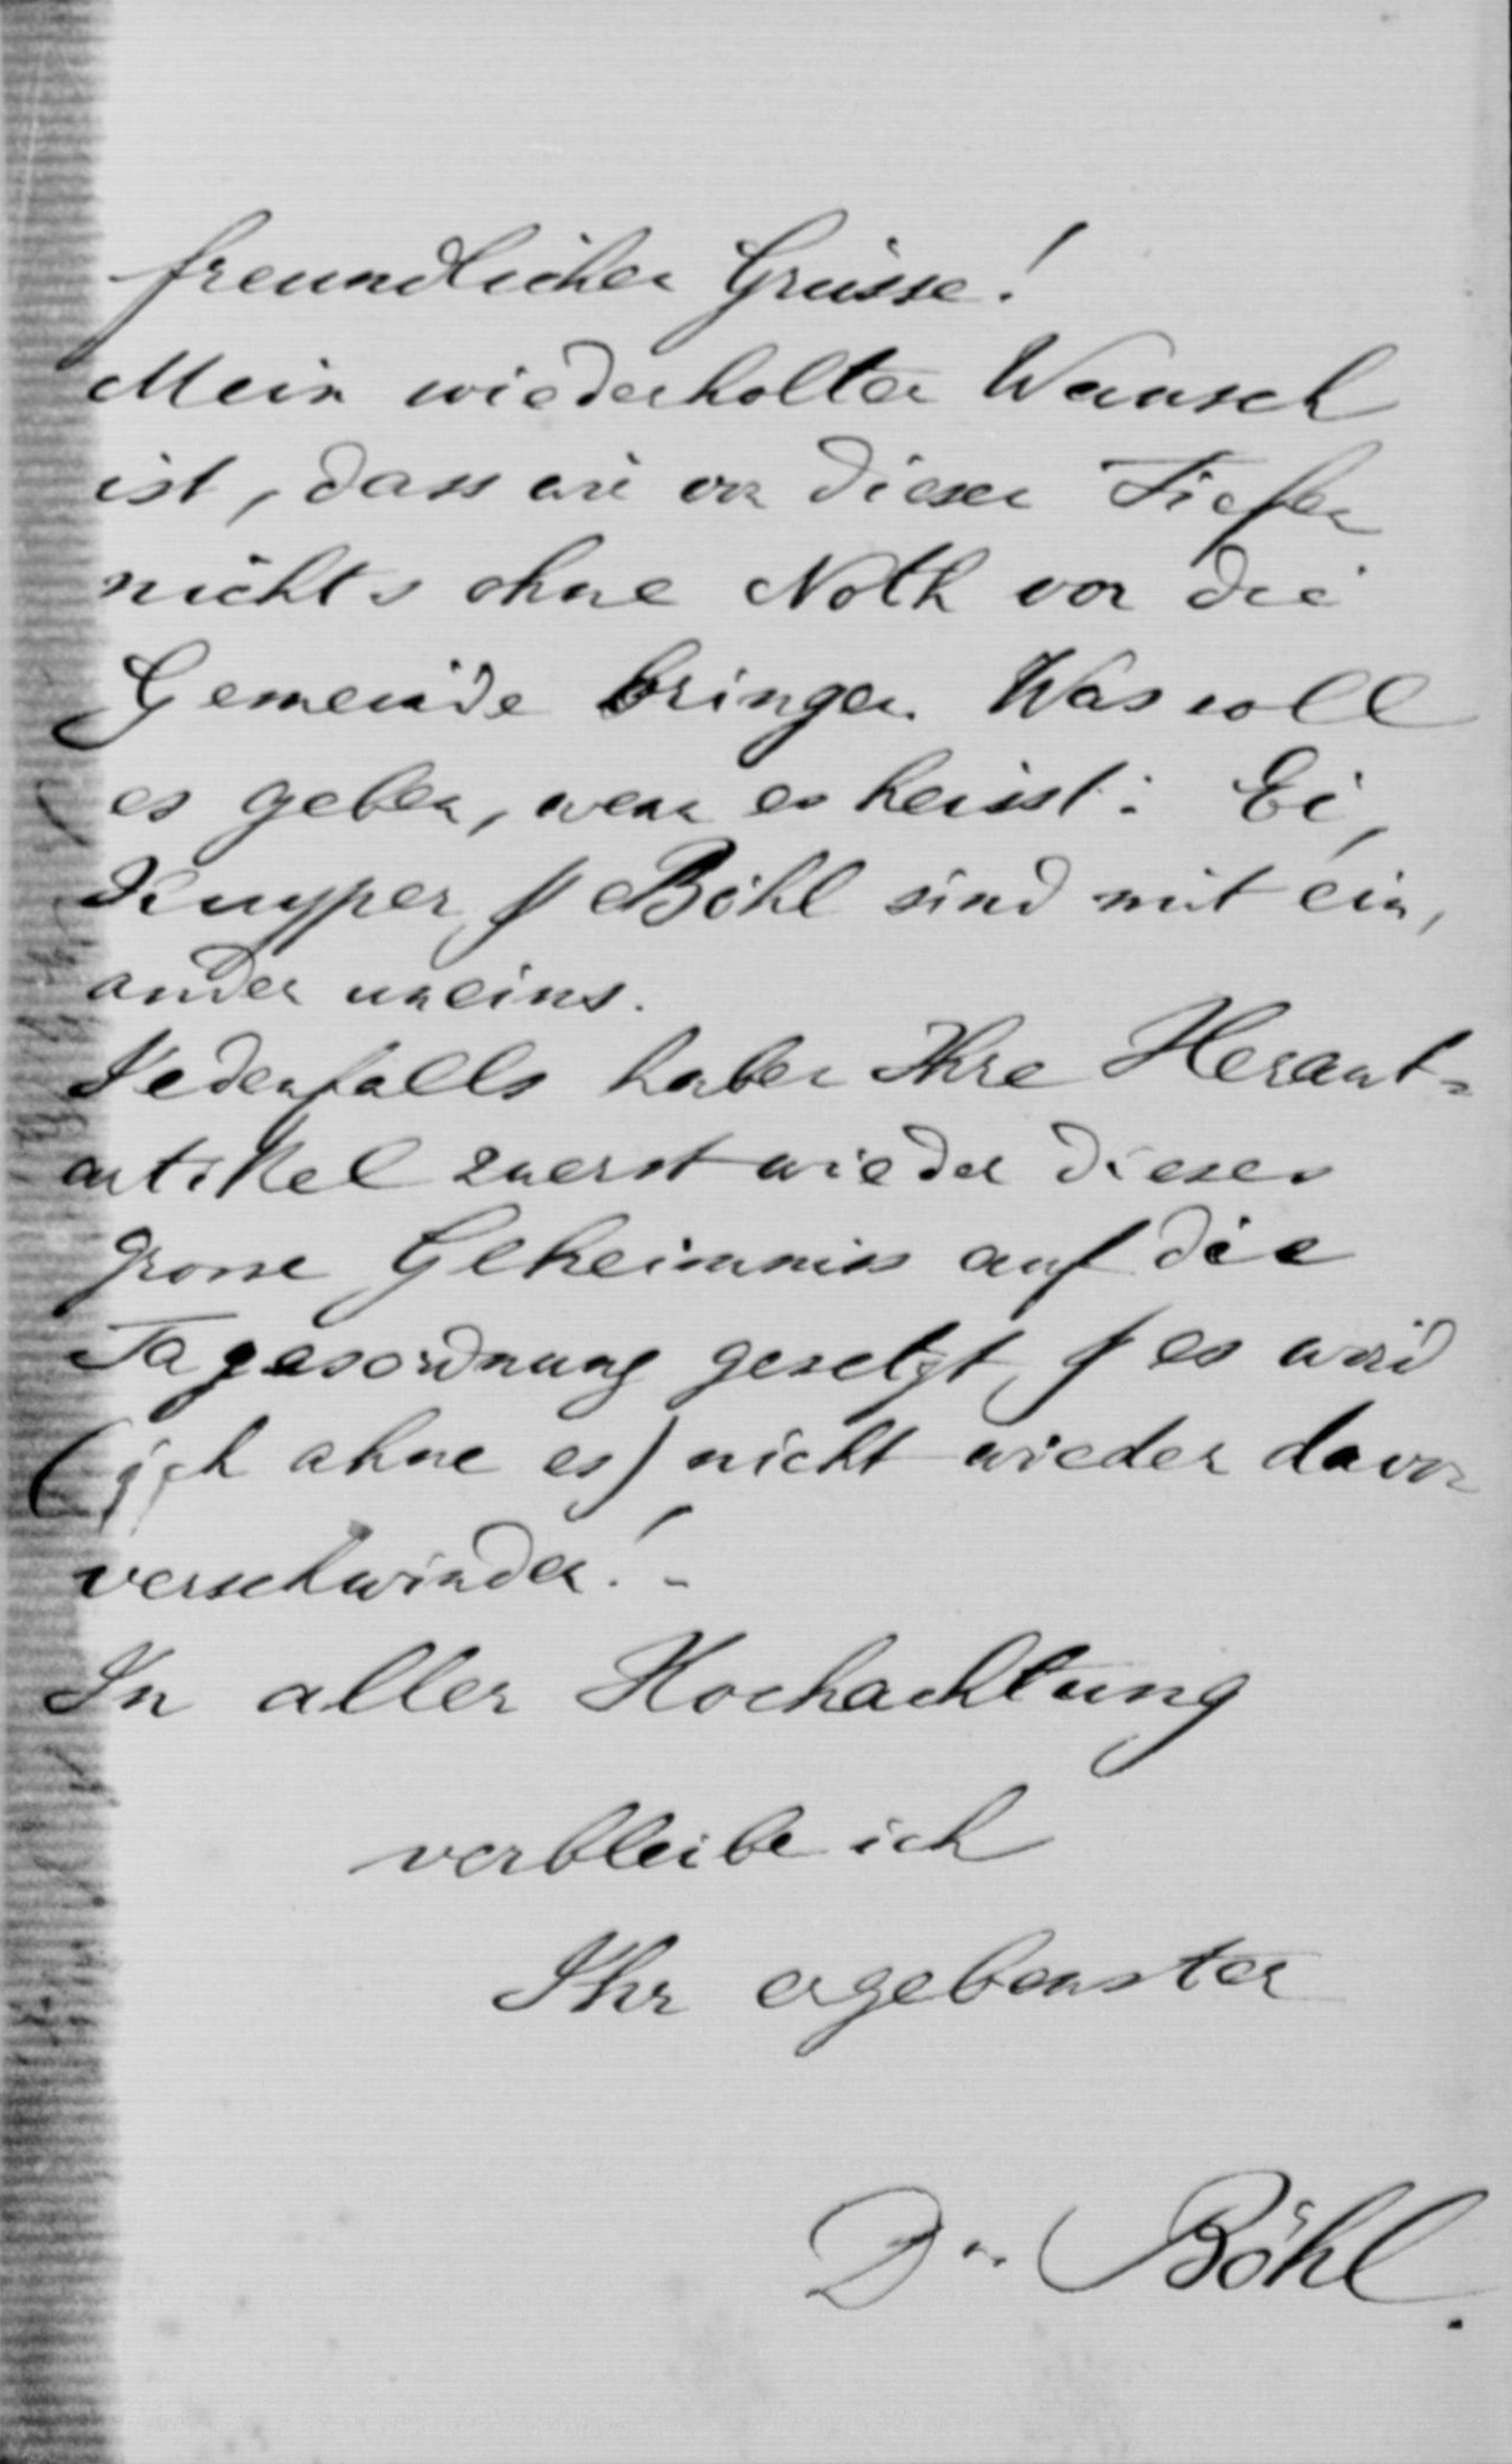 freundlichen Grüsse!
Mein wiederholter Wunsch
ist, dass wir von diesen Tiefen
nichts ohne Noth vor die
Gemeinde bringen. Was soll
es geben, wenn es heisst: Ei,
Kuyper, & Böhl sind mit ein,
ander uneins.
Jedenfalls haben Ihre Heraut-
artikel zuerst wieder dieses
grosse Geheimniss auf die
Tagesordnung gesetzt, & es wird
(ich ahne es) nicht wieder davon
verschwinden! -
In aller Hochachtung
verbleibe ich
Ihr ergebenster
Dr. Böhl.